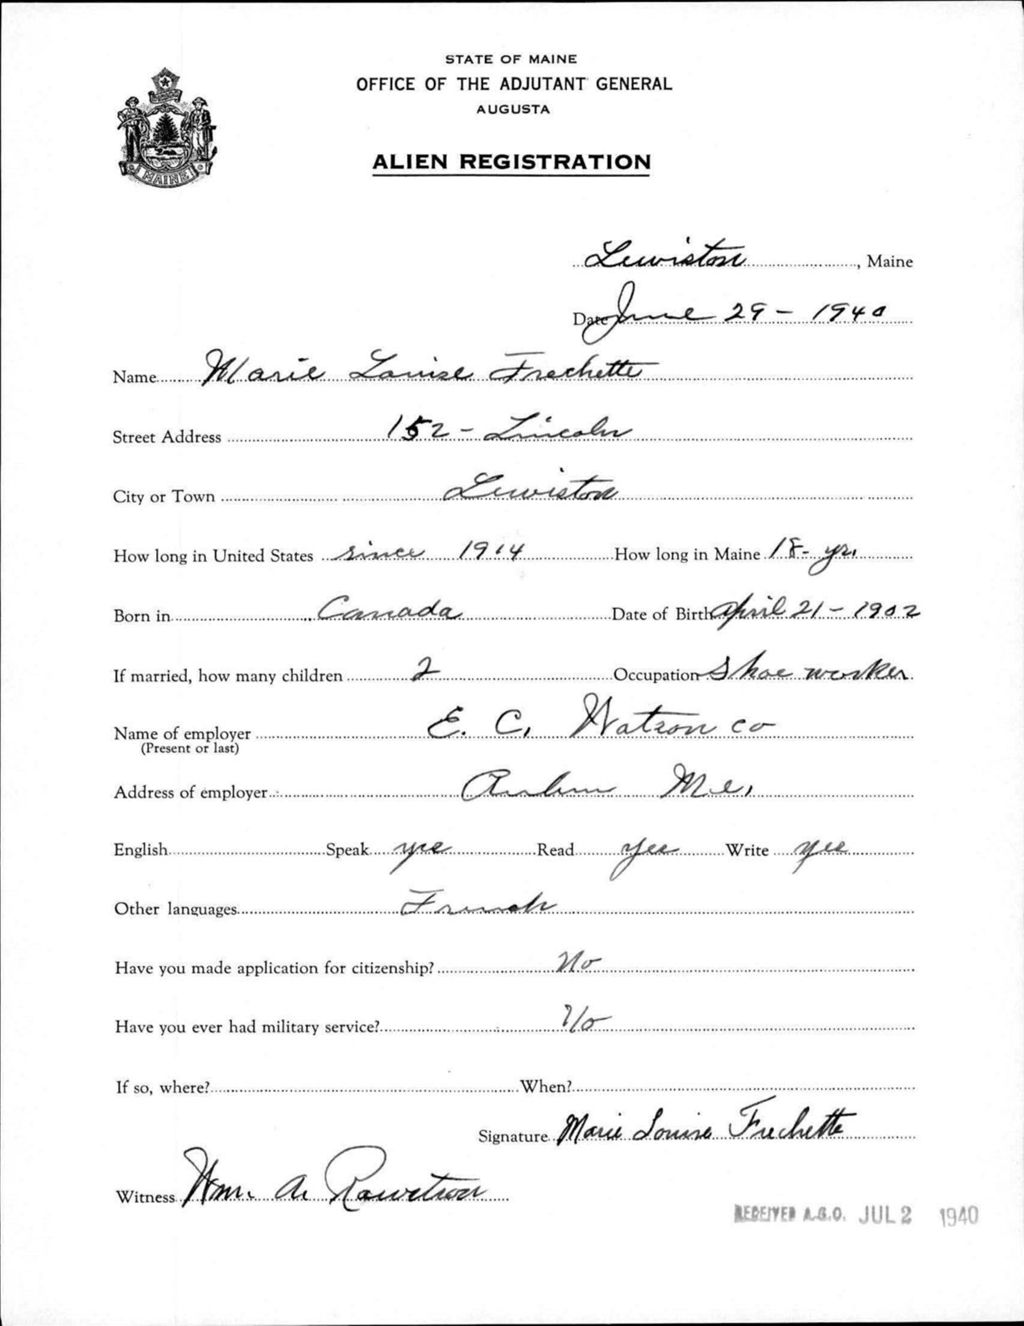 STATE OF MAINE
OFFICE OF THE ADJUTANT GENERAL
AUGUSTA
ALIEN REGISTRATION
MAINE
Lewiston, Maine
Date June 29 - 1940
Name Marie Louise Frechette
Street Address 152 - Lincoln
City or Town Lewiston
How long in United States since 1914 How long in Maine 18 - yrs
Born in Canada Date of Birth April 21 - 1902
If married, how many children 2 Occupation Shoe worker
Name of employer E. C. Watson co
(Present or last)
Address of employer Auburn Me.
English Speak yes Read yes Write yes
Other languages French
Have you made application for citizenship? No
Have you ever had military service? No
If so, where? When?
Signature Marie Louise Frechette
Witness Wm. A.
RECEIVED A.G.O. JUL 2 1940